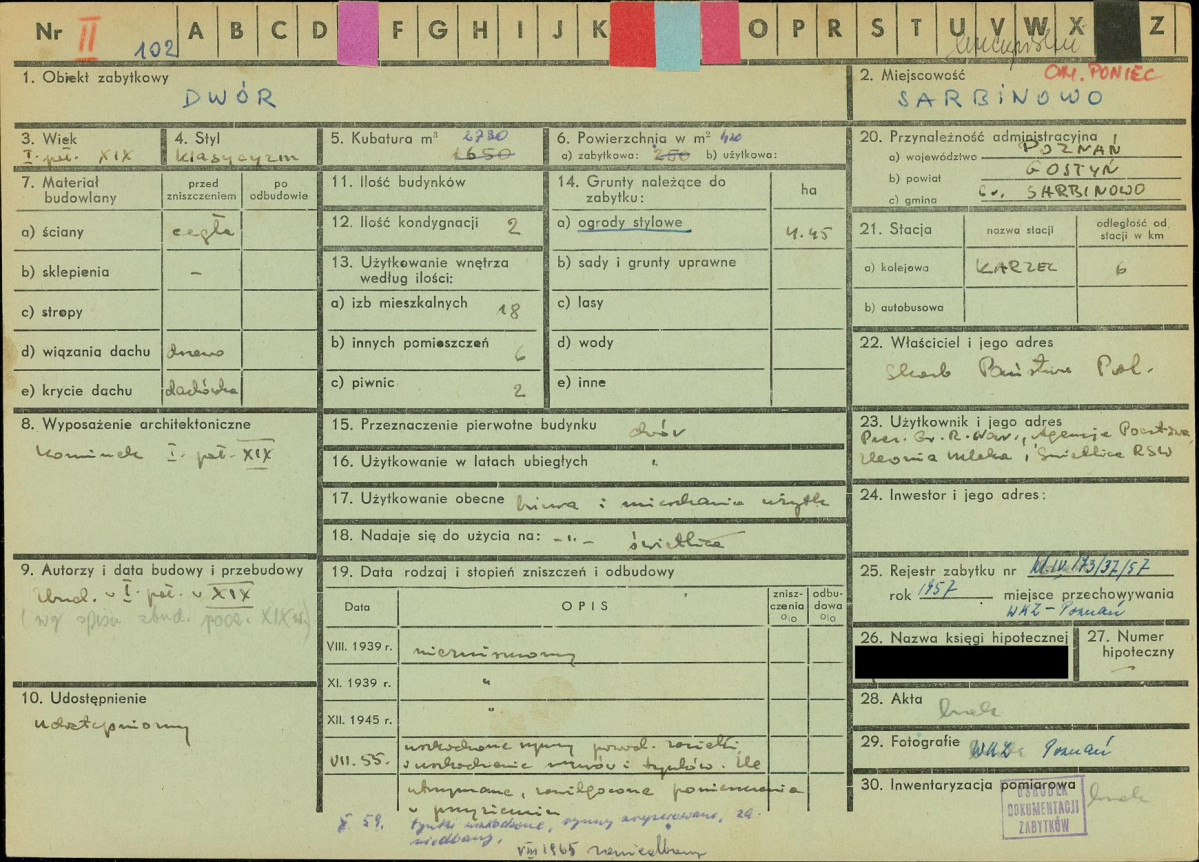 Nr II 102 A B C D F G H I J K O P R S T U V W X Z
1. Obiekt zabytkowy
DWÓR
2. Miejscowość
GM. PONIEC
SARBINOWO
3. Wiek
I. poł. XIX
4. Styl
Klasycyzm
5. Kubatura m³ 2730
1650
6. Powierzchnia w m² 420
a) zabytkowa: 280 b) użytkowa:
20. Przynależność administracyjna
a) województwo POZNAŃ
b) powiat GOSTYŃ
c) gmina SARBINOWO
7. Materiał budowlany
przed zniszczeniem
po odbudowie
a) ściany cegła
b) sklepienia –
c) stropy
d) wiązania dachu drewno
e) krycie dachu dachówka
11. Ilość budynków
12. Ilość kondygnacji 2
13. Użytkowanie wnętrza
według ilości:
a) izb mieszkalnych 18
b) innych pomieszczeń 6
c) piwnic 2
14. Grunty należące do
zabytku:
ha
a) ogrody stylowe 4.45
b) sady i grunty uprawne
c) lasy
d) wody
e) inne
21. Stacja
nazwa stacji
odległość od
stacji w km
a) kolejowa KARZEC 6
b) autobusowa
22. Właściciel i jego adres
Skarb Państwa Pol.
8. Wyposażenie architektoniczne
Kominek I. poł. XIX
15. Przeznaczenie pierwotne budynku dwór
16. Użytkowanie w latach ubiegłych "
17. Użytkowanie obecne biura i mieszkania użytk
18. Nadaje się do użycia na: –"– świetlica
23. Użytkownik i jego adres
Prez. Gr. R. Nar., Agencja Pocztowa
Zlewnia Mleka, Świetlica RSW
24. Inwestor i jego adres:
9. Autorzy i data budowy i przebudowy
Zbud. w I. poł. w XIX
(wg spisu zbud. pocz. XIX w.)
19. Data rodzaj i stopień zniszczeń i odbudowy
Data
OPIS
znisz-
czenia
o|o
odbu-
dowa
o|o
VIII. 1939 r. niezniszczony
XI. 1939 r. "
XII. 1945 r. "
VII. 55. uszkodzone rynny powod. zacieki
i uszkodzenie murów i tynków. Źle
utrzymane, zawilgocone pomieszczenia
w przyziemiu
X. 59. tynki uszkodzone, rynny, za
niedbany,
VIII 1965 zaniedbany
25. Rejestr zabytku nr 173/37/57
rok 1957 miejsce przechowywania
WKZ – Poznań
26. Nazwa księgi hipotecznej
27. Numer
hipoteczny
–
10. Udostępnienie
udostępniony
28. Akta brak
29. Fotografie WKZ Poznań
30. Inwentaryzacja pomiarowa brak
OŚRODEK
DOKUMENTACJI
ZABYTKÓW